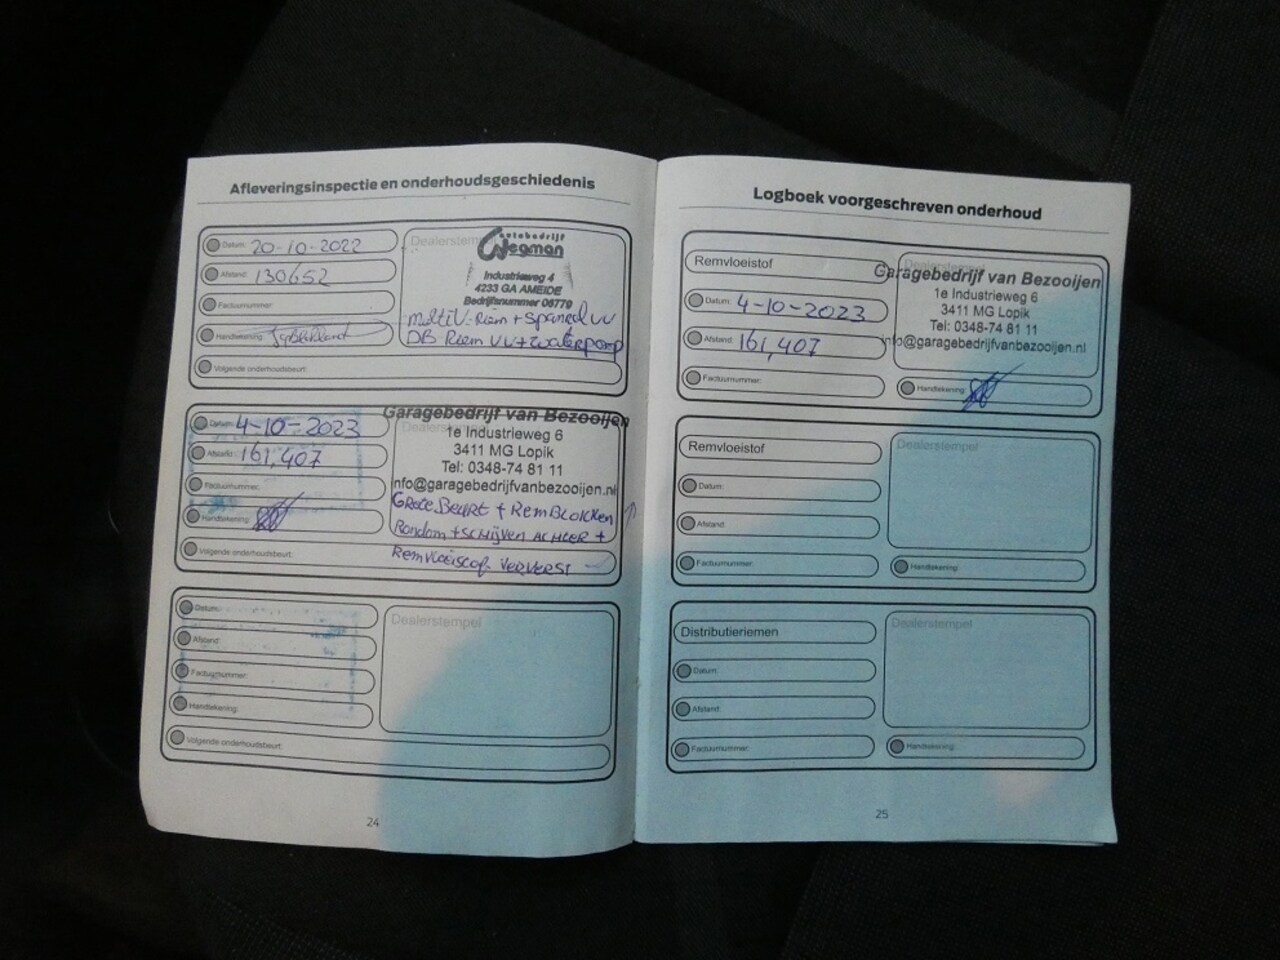 Afleveringsinspectie en onderhoudsgeschiedenis
Datum: 20-10-2022
Afstand: 130652
Factuurnummer:
Handtekening:
Volgende onderhoudsbeurt:
Dealerstempel
autobedrijf
Wegman
Industrieweg 4
4233 GA AMEIDE
Bedrijfsnummer 06770
Multi V-Riem + Spanrol VV
DB Riem VV + Waterpomp
Datum: 4-10-2023
Afstand: 161,407
Factuurnummer:
Handtekening:
Volgende onderhoudsbeurt:
Garagebedrijf van Bezooijen
1e Industrieweg 6
3411 MG Lopik
Tel: 0348-74 81 11
nfo@garagebedrijfvanbezooijen.nl
Grote Beurt + RemBlokken
Rondom + SCHijven ACHTER +
Remvloeistof VERVERST
Datum:
Afstand:
Factuurnummer:
Handtekening:
Volgende onderhoudsbeurt:
Dealerstempel
24
Logboek voorgeschreven onderhoud
Remvloeistof
Datum: 4-10-2023
Afstand: 161,407
Factuurnummer:
Dealerstempel
Garagebedrijf van Bezooijen
1e Industrieweg 6
3411 MG Lopik
Tel: 0348-74 81 11
info@garagebedrijfvanbezooijen.nl
Handtekening:
Remvloeistof
Datum:
Afstand:
Factuurnummer:
Dealerstempel
Handtekening:
Distributieriemen
Datum:
Afstand:
Factuurnummer:
Dealerstempel
Handtekening:
25